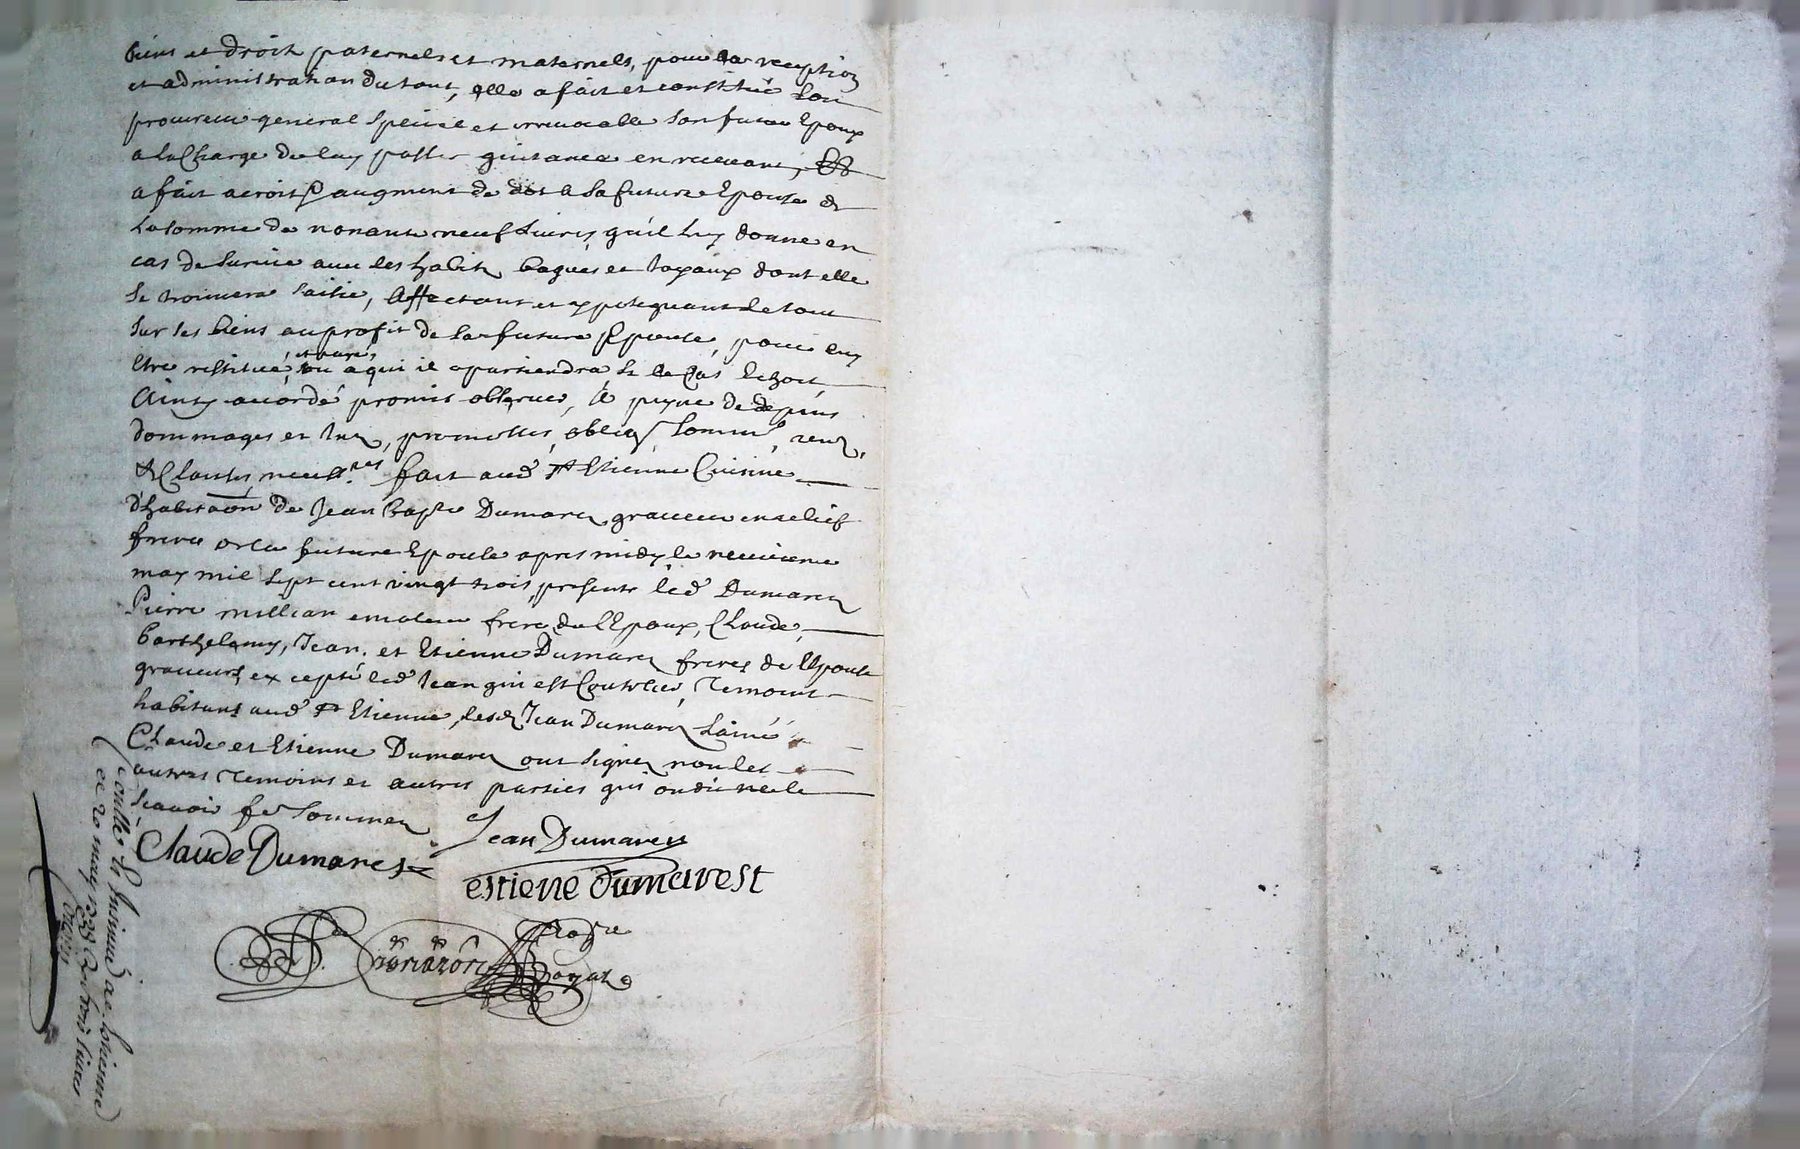 biens et droits paternels et maternels, pour la reception
et administration du tout, elle a fait et constitué son
procureur general special et irrevocable son futur Epoux
a la Charge de luy passer quitance en recevant,
a fait acroist augment de dot a sa future Epouse de
la somme de nonante neuf livres qu'il luy donne en
cas de survie avec les habits bagues et joyaux dont elle
se trouvera saisie, affectant et ypotequant le tout
sur ses biens au profit de sa future Epouse, pour luy
Estre restitué, ou a qui il apartiendra si le cas Echoit
Ainsy accordé promis observer, a peyne de depens
dommages et promesses, oblig soumis, renon,
& Clauses fait aud St Etienne Cuisine
d'habitaôn de Jean Bapte Dumarest graveur en relief
frere de la future Epouse apres midy le
may mil sept cent vingt trois, presents led Dumarest
Pierre millian emoleur frere de l'Epoux, Claude,
barthelemy, Jean, et Etienne Dumarest freres de l'Epouse
graveurs, excepté led Jean qui est Coutelier, Temoins
habitans aud St Etienne, lesd Jean Dumarest l'ainé
Claude et Etienne Dumarest ont signez non les
autres Temoins et autres parties qui ont dit ne le
scavoir sommez
Jean Dumarest
Claude Dumarest
estiene dumarest
Conllé et Insinué a St Estienne
ce 20 may 1723 trois livres